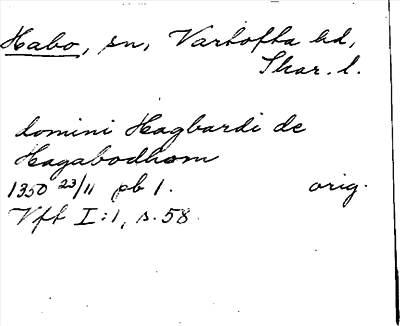 Habo, sn, Vartofta hd,
Skar. l.
domini Hagbardi de
Hagabodhom
1350 23/11 pb 1. orig.
Vft I:1, s. 58.